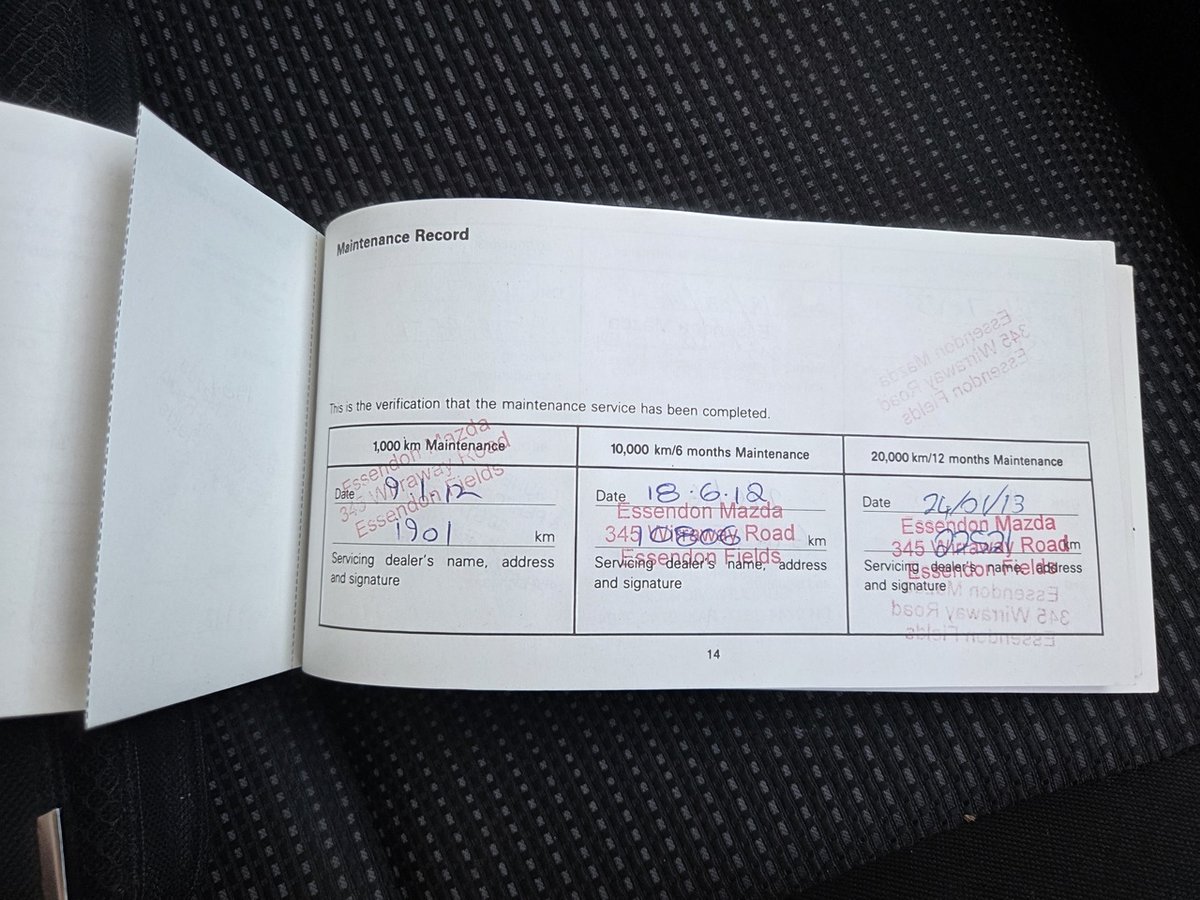 Maintenance Record
Essendon Mazda
345 Wirraway Road
Essendon Fields
This is the verification that the maintenance service has been completed.
1,000 km Maintenance
Essendon Mazda
345 Wirraway Road
Essendon Fields
Date 9.1.12
1901 km
Servicing dealer's name, address
and signature
10,000 km/6 months Maintenance
Date 18.6.12
Essendon Mazda
345 Wirraway Road
10806 km
Essendon Fields
Servicing dealer's name, address
and signature
20,000 km/12 months Maintenance
Date 24/01/13
Essendon Mazda
345 Wirraway Road
km
Essendon Fields
Servicing dealer's name, address
and signature
Essendon Mazda
345 Wirraway Road
Essendon Fields
14